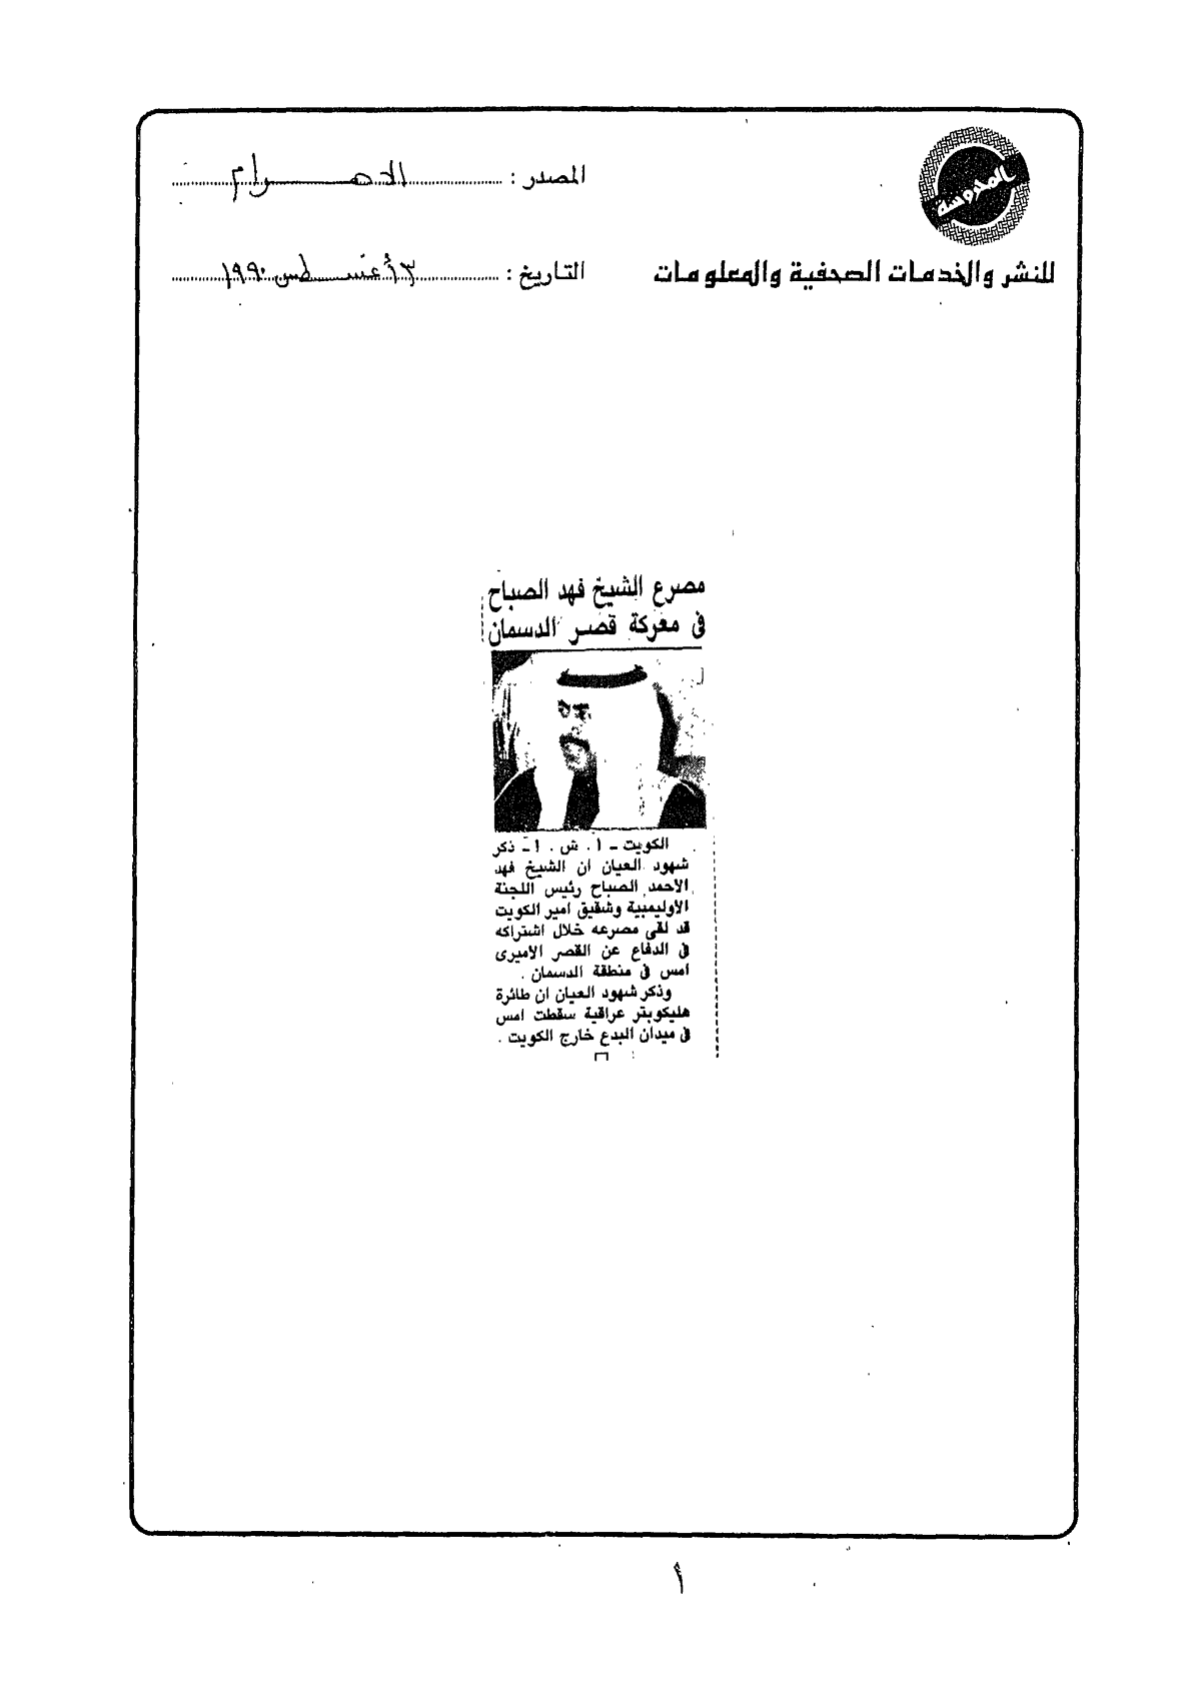 المدوسة
المصدر : الاهرام
للنشر والخدمات الصحفية والمعلومات
التاريخ : ٣ أغسطس ١٩٩٠
مصرع الشيخ فهد الصباح
فى معركة قصر الدسمان
الكويت - أ . ش . أ - ذكر
شهود العيان ان الشيخ فهد
الاحمد الصباح رئيس اللجنة
الاوليمبية وشقيق امير الكويت
قد لقى مصرعه خلال اشتراكه
فى الدفاع عن القصر الاميرى
امس فى منطقة الدسمان .
وذكر شهود العيان ان طائرة
هليكوبتر عراقية سقطت امس
فى ميدان البدع خارج الكويت .
أ